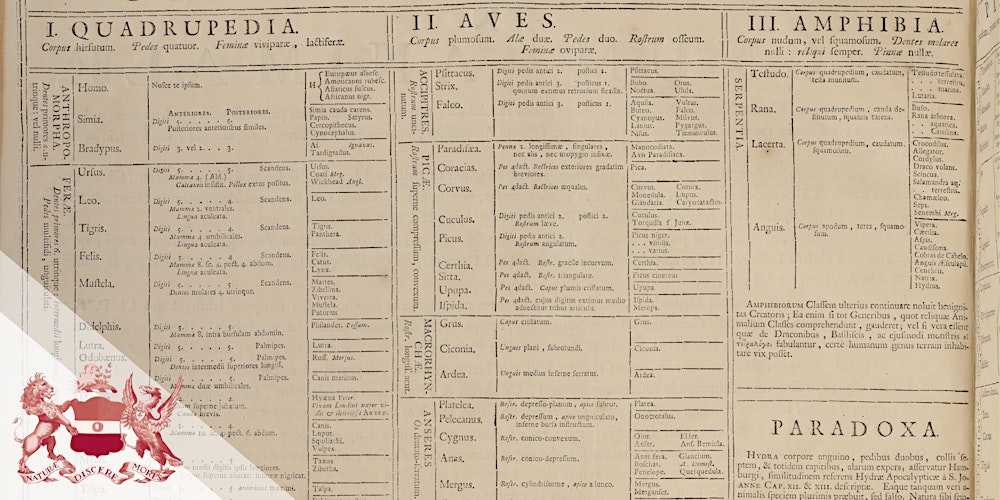 I. QUADRUPEDIA.
Corpus hirsutum. Pedes quatuor. Feminæ viviparæ, lactiferæ.
ANTHROPO-
MORPHA.
Homo.
Nosce te ipsum.
H
Europæus albesc.
Americanus rubesc.
Asiaticus fuscus.
Africanus nigr.
Simia.
ANTERIORES. POSTERIORES.
Digiti 5. . . . . . 5.
Posteriores anterioribus similes.
Simia cauda carens.
Papio. Satyrus.
Cercopithecus.
Cynocephalus.
Bradypus.
Digiti 3. vel 2. . . 3.
Ai. Ignavus.
Tardigradus.
FERÆ.
Ursus.
Digiti 5. . . . . . 5. Scandens.
Mamma 4. (Ald.)
Calcaneis insistit. Pollex extus positus.
Ursus.
Coati Mrg.
Wickhead Angl.
Leo.
Digiti 5. . . . . . 4. Scandens.
Mamma 2. ventrales.
Lingua aculeata.
Leo.
Tigris.
Digiti 5. . . . . . 4. Scandens.
Mamma 4 umbilicales.
Lingua aculeata.
Tigris.
Panthera.
Felis.
Digiti 5. . . . . . 4. Scandens.
Mamma 8. sc. 4 pect. 4. abdom.
Lingua aculeata.
Felis.
Catus.
Lynx.
Mustela.
Digiti 5. . . . . . 5. Scandens.
Dentes molares 4. utrinque.
Martes.
Zibellina.
Viverra.
Mustela.
Putorius.
Didelphis.
Digiti 5. . . . . . 5.
Mamma 8. intra bursulam abdomin.
Philander. Possum.
Lutra.
Digiti 5. . . . . . 5. Palmipes.
Lutra.
Odobænus.
Digiti 5. . . . . . 5. Palmipes.
Dentes intermedii superiores longiss.
Ross. Morsus.
Palmipes.
Mamma duæ umbilicales.
Canis marinus.
Hyæna Veter.
Canis.
Lupus.
Squillachi.
Vulpes.
Taxus.
Zibetha.
Talpa.
II. AVES.
Corpus plumosum. Alæ duæ. Pedes duo. Rostrum osseum.
Feminæ oviparæ.
ACCIPITRES.
Rostrum uncinatum.
Psittacus.
Digiti pedis antici 2. postici 2.
Psittacus.
Strix.
Digiti pedis antici 3. postici 1.
quorum extimus retrorsum flexilis.
Bubo. Otus.
Noctua. Ulula.
Falco.
Digiti pedis antici 3. postici 1.
Aquila. Vultur.
Buteo. Falco.
Cyanopus. Milvus.
Lanius. Pygargus.
Tinnunculus.
PICÆ.
Rostrum superne compressum, convexum.
Paradisæa.
Penna 2. longissimæ, singulares,
nec alis, nec uropygio infixæ.
Manucodiata.
Avis Paradisiaca.
Coracias.
Pes 4dact. Rectrices exteriores gradatim
breviores.
Pica.
Corvus.
Pes 4dact. Rectrices æquales.
Corvus. Cornix.
Monedula. Lupus.
Glandaria. Caryocatactes.
Cuculus.
Digiti pedis antici 2. postici 2.
Rostrum læve.
Cuculus.
Torquilla f. Junx.
Picus.
Digiti pedis antici 2.
Rostrum angulatum.
Picus niger.
viridis.
varius.
Certhia.
Pes 4dact. Rostr. gracile incurvum.
Certhia.
Sitta.
Pes 4dact. Rostr. triangulare.
Picus cinereus
Upupa.
Pes 4dact. Caput plumis cristatum.
Upupa.
Ispida.
Pes 4dact. cujus digitus extimus medio
adnectitur tribus articulis.
Ispida.
Merops.
MACRORHYN-
CHÆ.
Rostr. longiss. acut.
Grus.
Caput cristatum.
Grus.
Ciconia.
Ungues plani, subrotundi.
Ciconia.
Ardea.
Unguis medius inferne serratus.
Ardea.
ANSERES
Platelea.
Rostr. depresso-planum, apice subrot.
Platea.
Pelecanus.
Rostr. depressum, apice unguiculato,
inferne bursa instructum.
Onocrotalus.
Cygnus.
Rostr. conico-convexum.
Olor. Elder.
Anser. An. Bernicla.
Anas.
Rostr. conico-depressum.
Anas fera. Glaucium.
Boschas.
Penelope. Querquedula.
Mergus.
Rostr. cylindriforme, apice adunco.
Mergus.
Merganser.
III. AMPHIBIA.
Corpus nudum, vel squamosum. Dentes molares
nulli: reliqui semper. Pinnæ nullæ.
SERPENTIA.
Testudo.
Corpus quadrupedium, caudatum,
testa munitum.
Testudo tessulata.
terrestr.
marina.
Lutaria.
Rana.
Corpus quadrupedium, cauda de-
stitutum, squamis carens.
Bufo.
Rana arborea.
aquatica.
Carolina.
Lacerta.
Corpus quadrupedium, caudatum,
squamosum.
Crocodilus.
Allegator.
Cordylus.
Draco volans.
Scincus.
Salamandra aq.
terrestris.
Chamæleo.
Seps.
Senembi Mrg.
Anguis.
Corpus apodum, teres, squamo-
sum.
Vipera.
Cæcilia.
Aspis.
Caudisona.
Cobras de Cabelo.
Anguis Æsculapii.
Cenchris.
Natrix.
Hydrus.
AMPHIBIORUM Classem ulterius continuare noluit benigni-
tas Creatoris; Ea enim si tot Generibus, quot reliquæ Ani-
malium Classes comprehendunt, gauderet; vel si vera essent
quæ de Draconibus, Basiliscis, ac ejusmodi monstris
fabulantur, certè humanum genus terram inhabi-
tare vix posset.
PARADOXA.
HYDRA corpore anguino, pedibus duobus, collis se-
ptem, & totidem capitibus, alarum expers, asservatur Ham-
burgi, similitudinem referens Hydræ Apocalypticæ à S. Jo-
ANNE CAP. XII. & XIII. descriptæ. Eaque tanquam veri a-
nimalis speciem plurimis præbuit, sed falsò. Natura sibi
NATURÆ DISCERE MORES